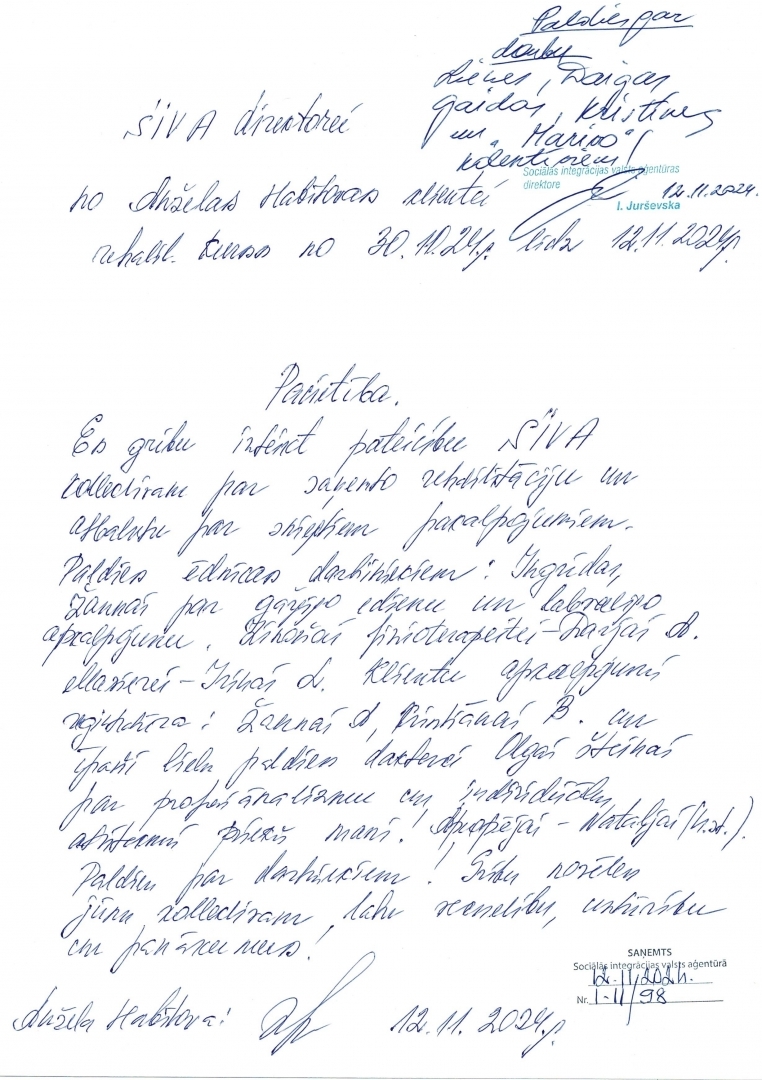 Paldies par
darbu
Lienes, Daigas
Gaidas, Kristīnes
un "Marino"
kolektīviem!
Sociālās integrācijas valsts aģentūras
direktore
12.11.2024.
I. Jurševska
SIVA direktorei
no Anželas Habitovas klientei
rehabil. kurss no 30.10.24.g. līdz 12.11.2024g.
Pacietība.
Es gribu izteikt pateicību SIVA
kollectivam par saņemto rehabilitāciju un
atbalstu par sniegtiem pakalpojumiem.
Paldies ēdnīcas darbiniekiem: Ingrīdas,
Žannai par garšīgo edienu un labvēlīgo
apkalpojumu. Zinošai fizioterapeitei - Darjai A.
Masierei - Irinai L. Klientu apkalpojumi
registratūra: Žannai A, Kristiānai B. un
īpaši lielu paldies dakterei Olgai Šteinai
par profesionalismu un individuālu
attieksmi pret mani! Aprūpējai - Nataljai (n.st.).
Paldies par darbiniekiem! Gribu novēlēt
jūsu kollectivam labu veselību, izturību
un panākumus!
SAŅEMTS
Sociālās integrācijas valsts aģentūrā
12.11.2024.
Nr. 1-11/98
Anžela Habitova: 12.11.2024.g.